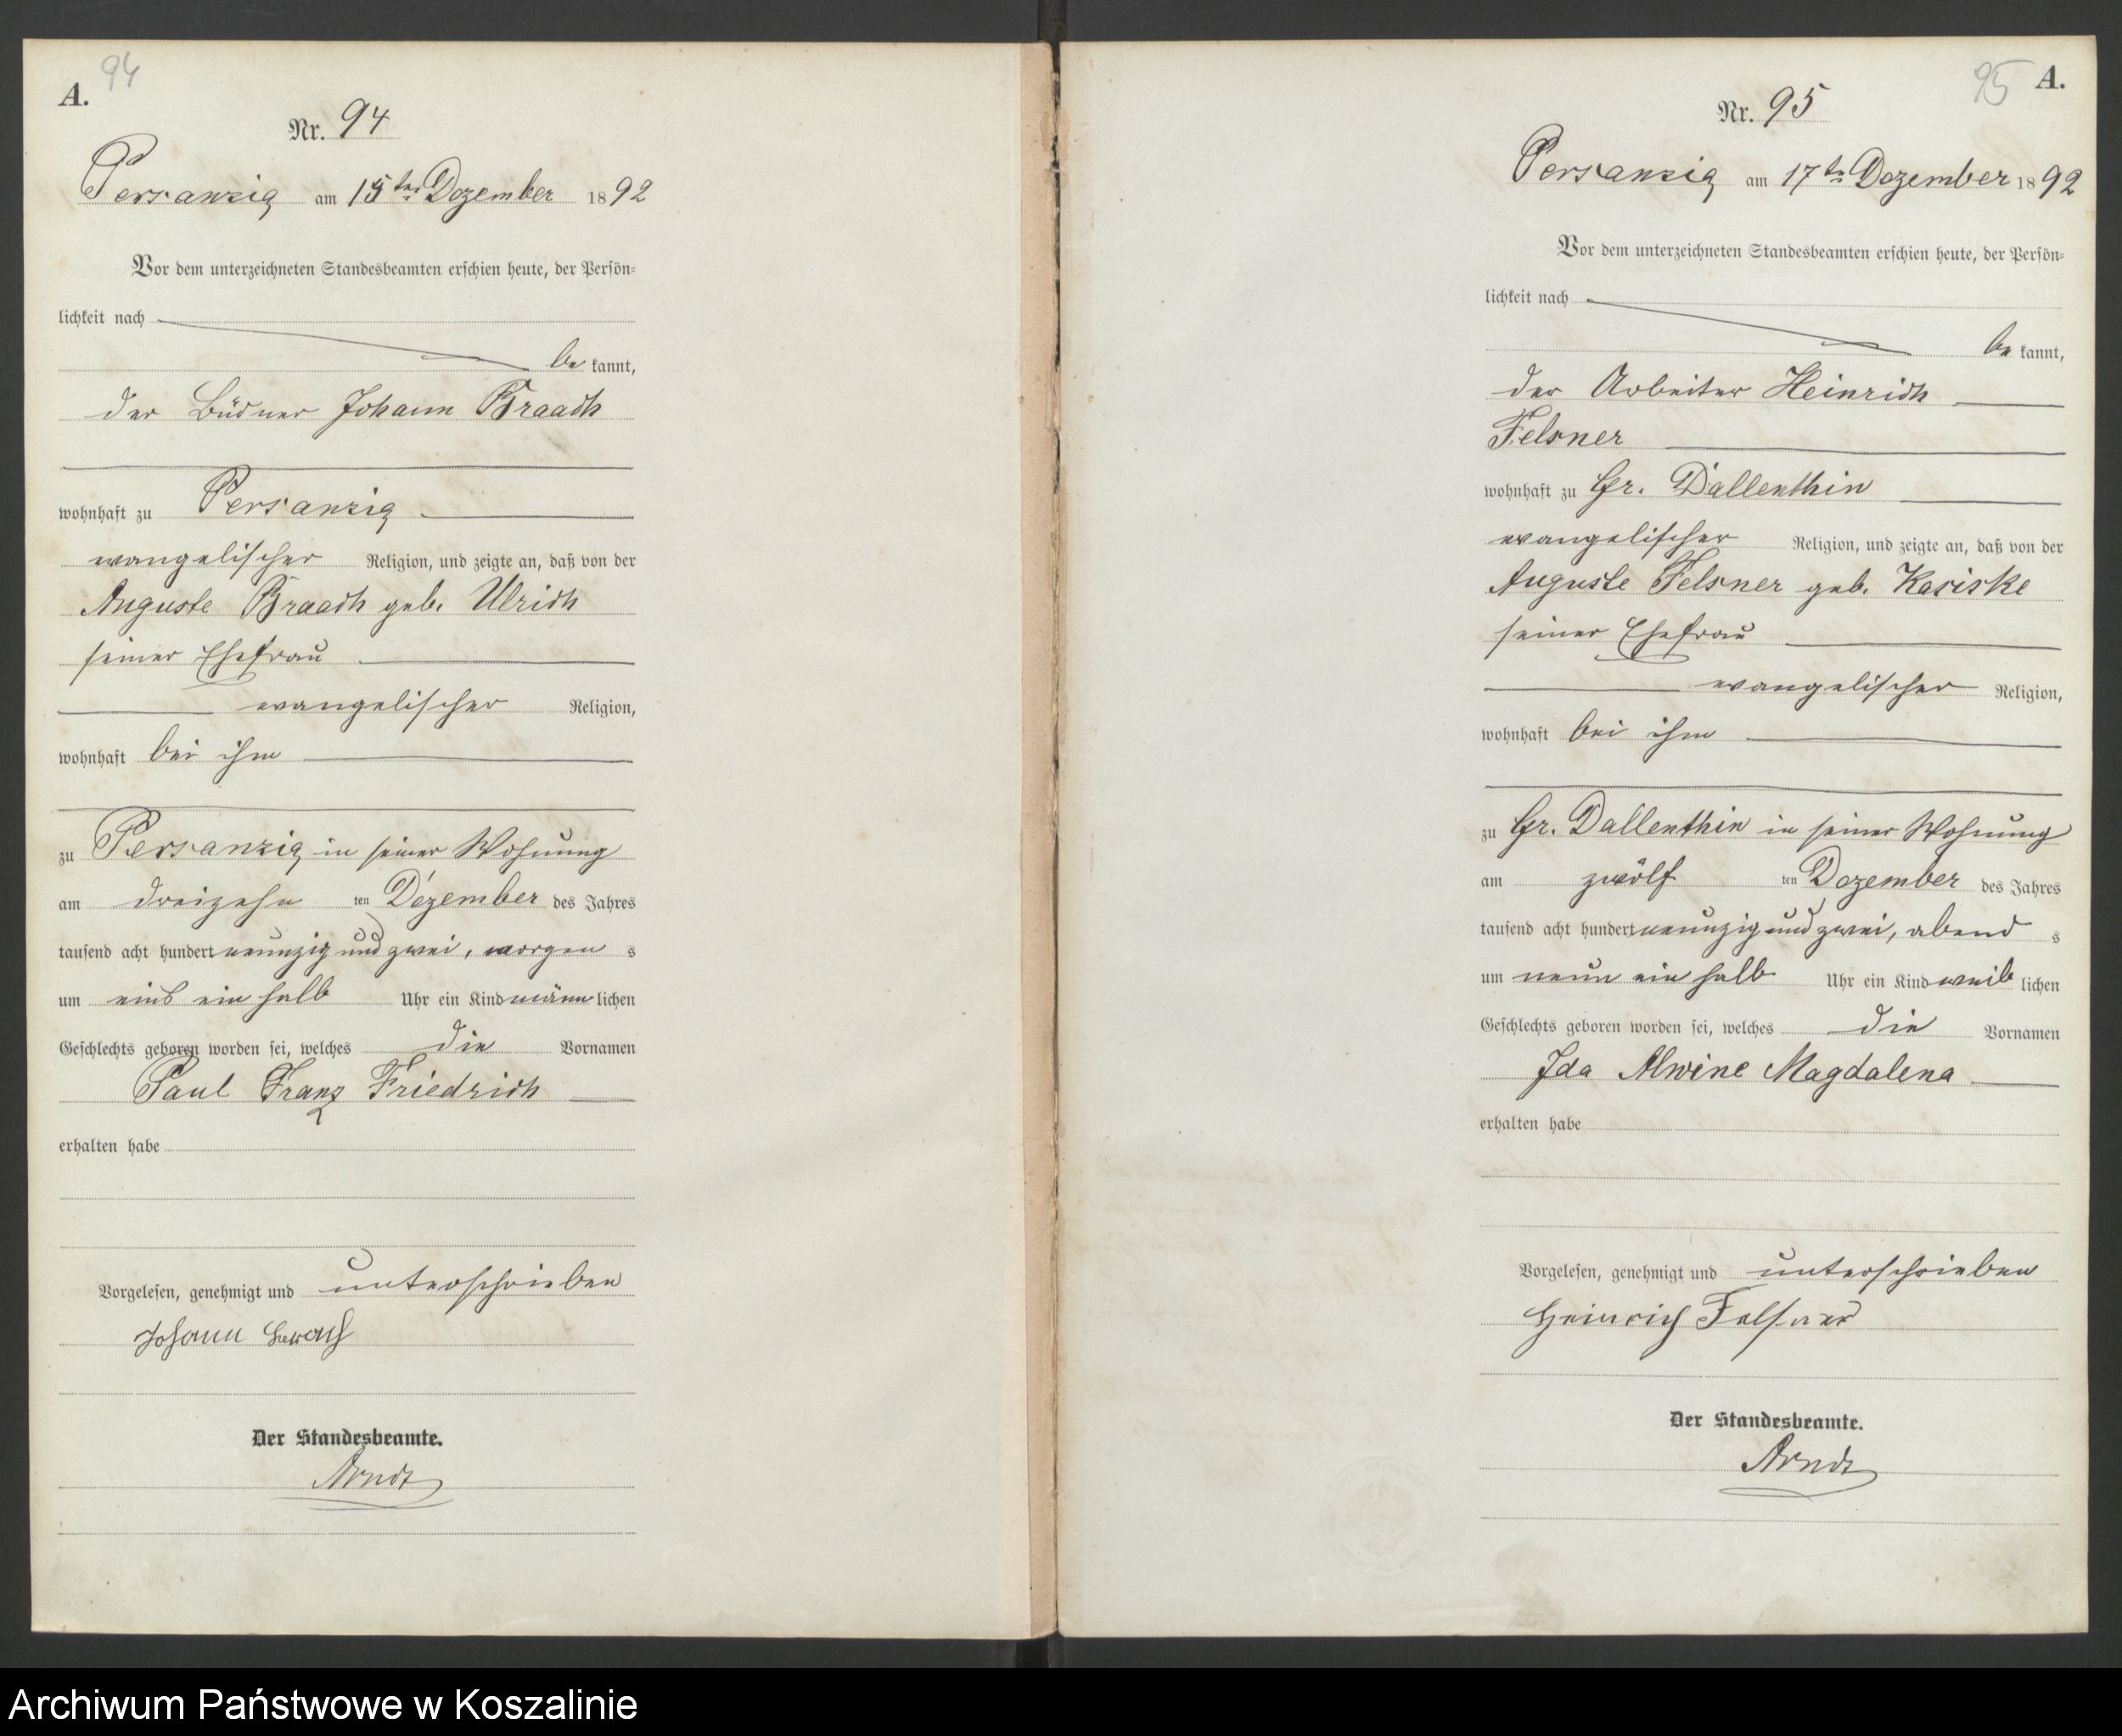 94
A.
Nr. 94
Persanzig am 15ten Dezember 1892
Vor dem unterzeichneten Standesbeamten erschien heute, der Persön-
lichkeit nach
be kannt,
der Büdner Johann Braach
wohnhaft zu Persanzig
evangelischer Religion, und zeigte an, daß von der
Auguste Braach geb. Ulrich
seiner Ehefrau
evangelischer Religion,
wohnhaft bei ihm
zu Persanzig in seiner Wohnung
am dreizehn ten Dezember des Jahres
tausend acht hundert neunzig und zwei, morgen s
um eins ein halb Uhr ein Kind männ lichen
Geschlechts geboren worden sei, welches die Vornamen
Paul Franz Friedrich
erhalten habe
Vorgelesen, genehmigt und unterschrieben
Johann
Der Standesbeamte.
Arndt
95
A.
Nr. 95
Persanzig am 17ten Dezember 1892
Vor dem unterzeichneten Standesbeamten erschien heute, der Persön-
lichkeit nach
be kannt,
der Arbeiter Heinrich
Felsner
wohnhaft zu Gr. Dallenthin
evangelischer Religion, und zeigte an, daß von der
Auguste Felsner geb. Kasiske
seiner Ehefrau
evangelischer Religion,
wohnhaft bei ihm
zu Gr. Dallenthin in seiner Wohnung
am zwölf ten Dezember des Jahres
tausend acht hundert neunzig und zwei, abend s
um neun ein halb Uhr ein Kind weib lichen
Geschlechts geboren worden sei, welches die Vornamen
Ida Alwine Magdalena
erhalten habe
Vorgelesen, genehmigt und unterschrieben
Heinrich Felsner
Der Standesbeamte.
Arndt
Archiwum Państwowe w Koszalinie